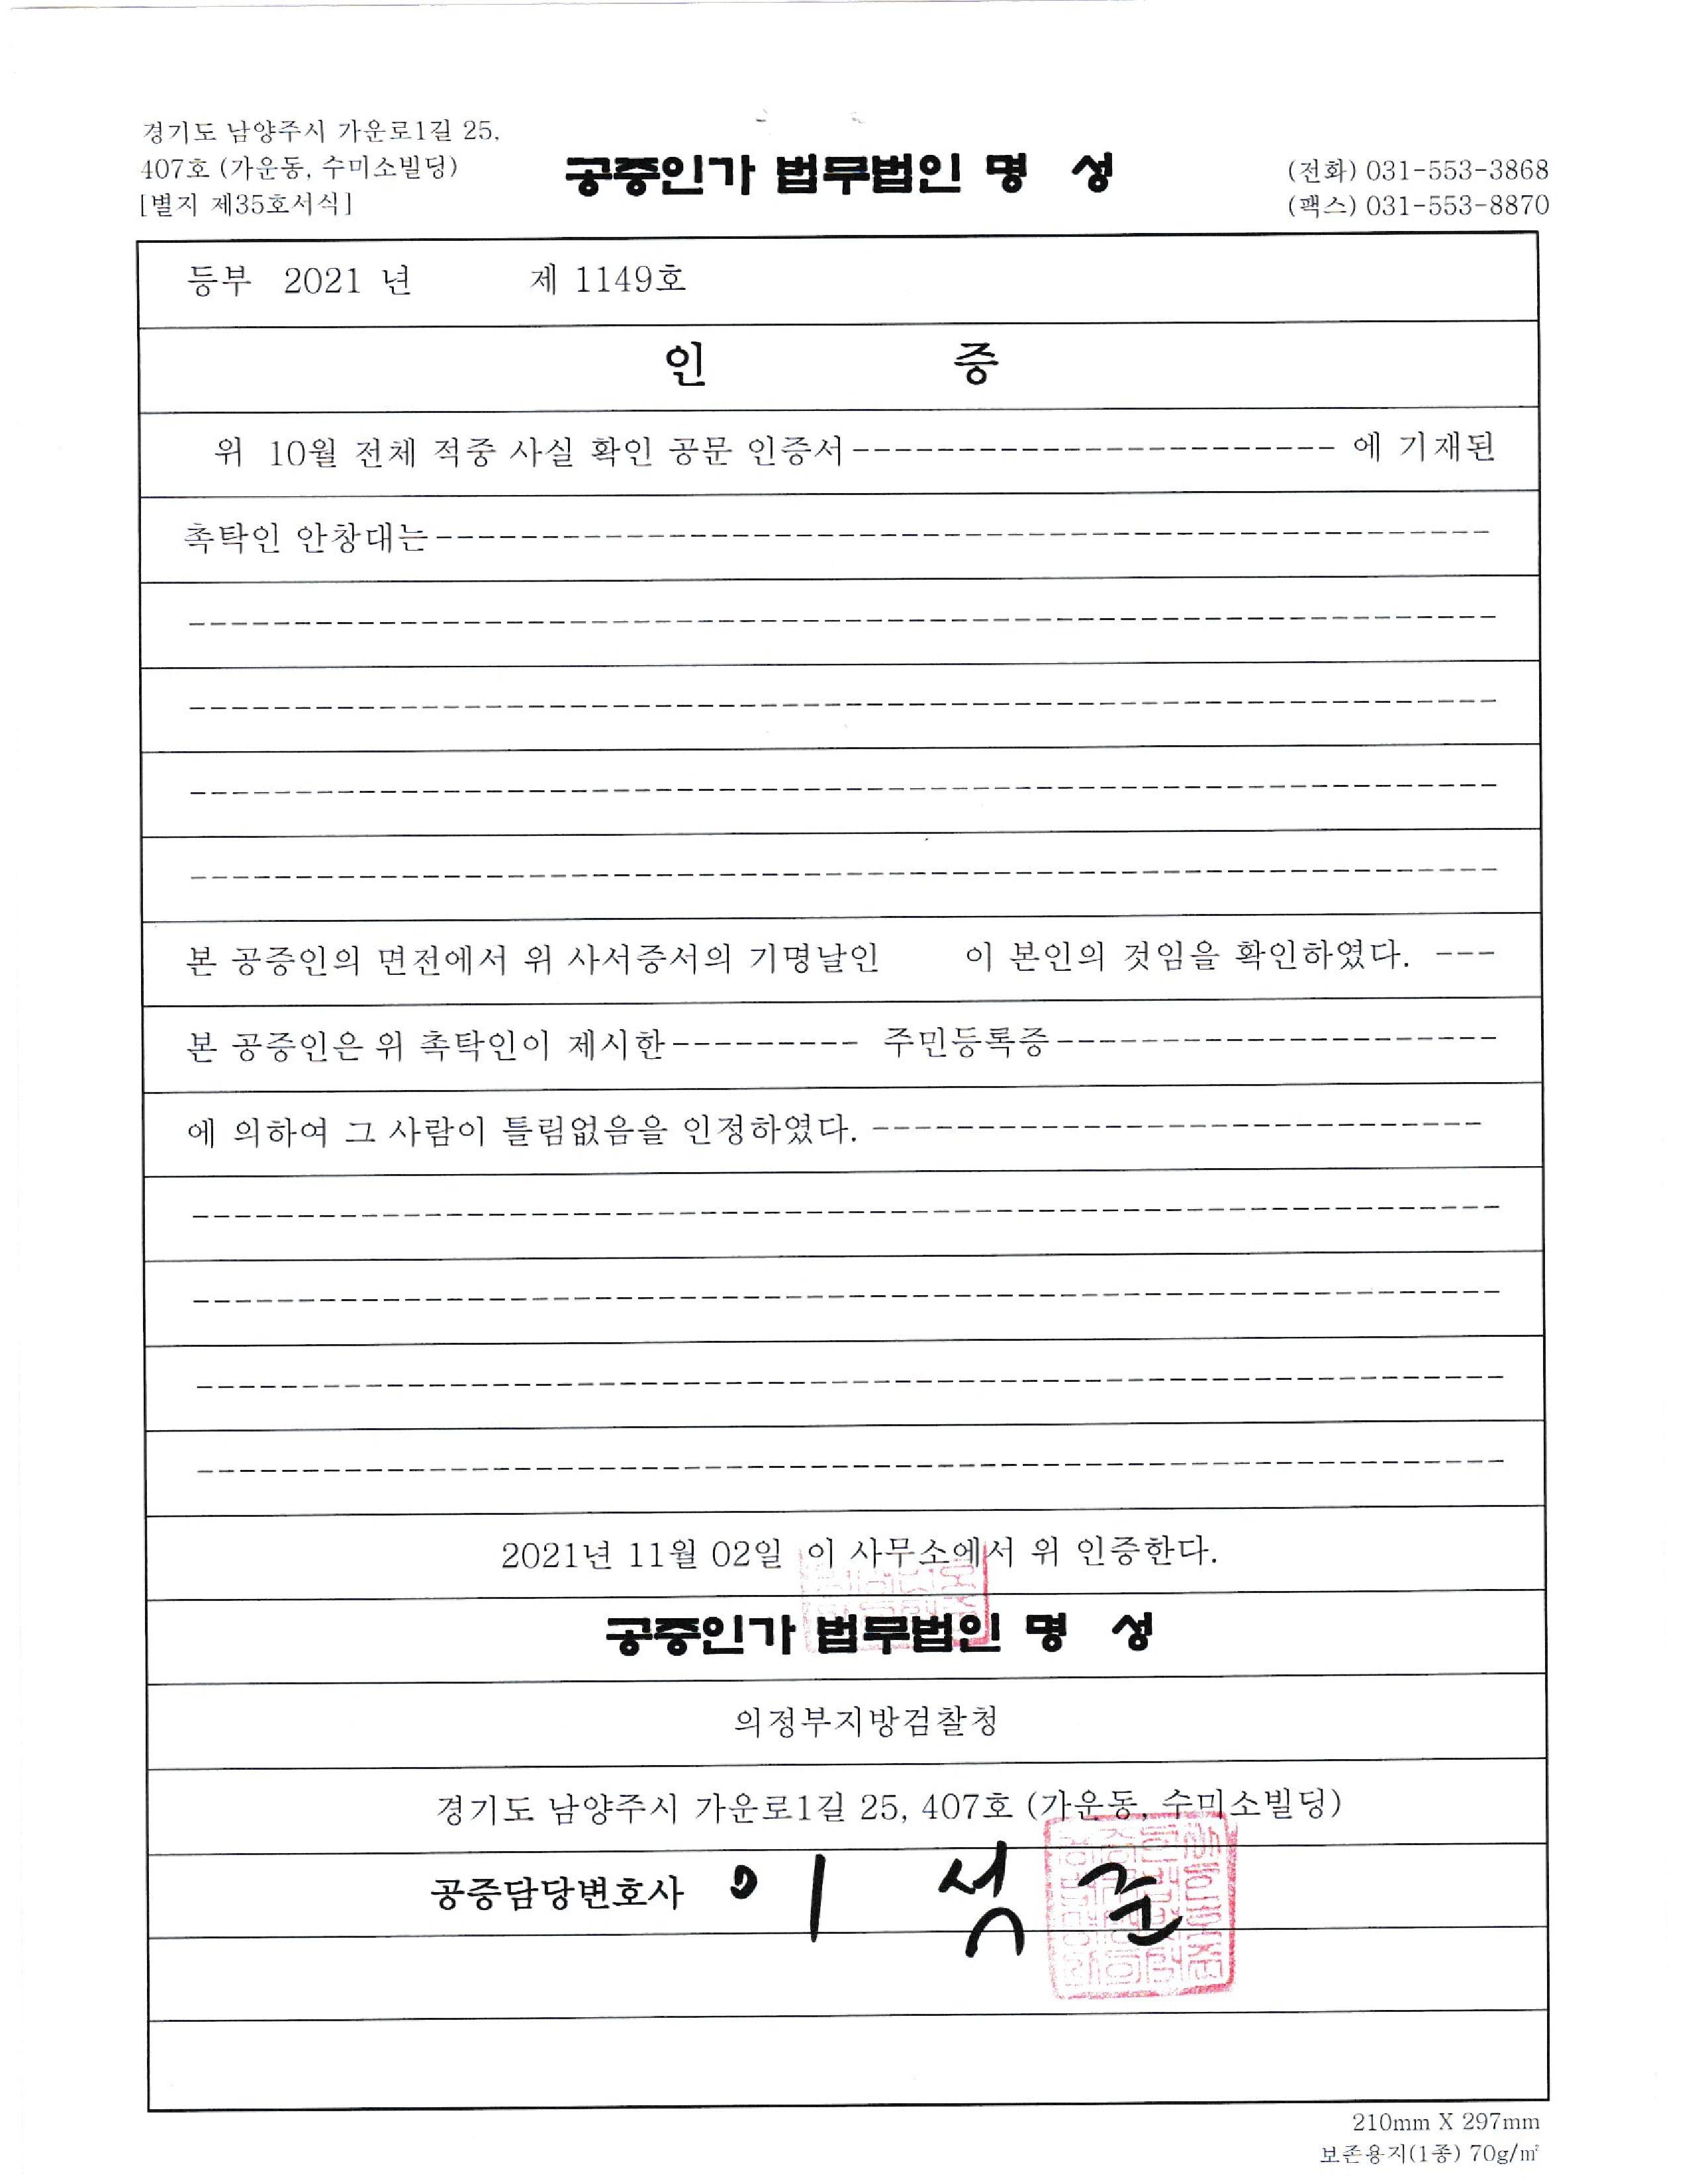 경기도 남양주시 가운로1길 25,
407호 (가운동, 수미소빌딩)
[별지 제35호서식]
공증인가 법무법인 명 성
(전화) 031-553-3868
(팩스) 031-553-8870
등부 2021 년 제 1149호
인 증
위 10월 전체 적중 사실 확인 공문 인증서----------------------- 에 기재된
촉탁인 안창대는--------------------------------------------------
--------------------------------------------------------------
--------------------------------------------------------------
--------------------------------------------------------------
--------------------------------------------------------------
본 공증인의 면전에서 위 사서증서의 기명날인 이 본인의 것임을 확인하였다. ---
본 공증인은 위 촉탁인이 제시한--------- 주민등록증---------------------
에 의하여 그 사람이 틀림없음을 인정하였다. -----------------------------
--------------------------------------------------------------
--------------------------------------------------------------
--------------------------------------------------------------
--------------------------------------------------------------
2021년 11월 02일 이 사무소에서 위 인증한다.
공증인가 법무법인 명 성
의정부지방검찰청
경기도 남양주시 가운로1길 25, 407호 (가운동, 수미소빌딩)
공증담당변호사 이 석 준
210mm X 297mm
보존용지(1종) 70g/㎡